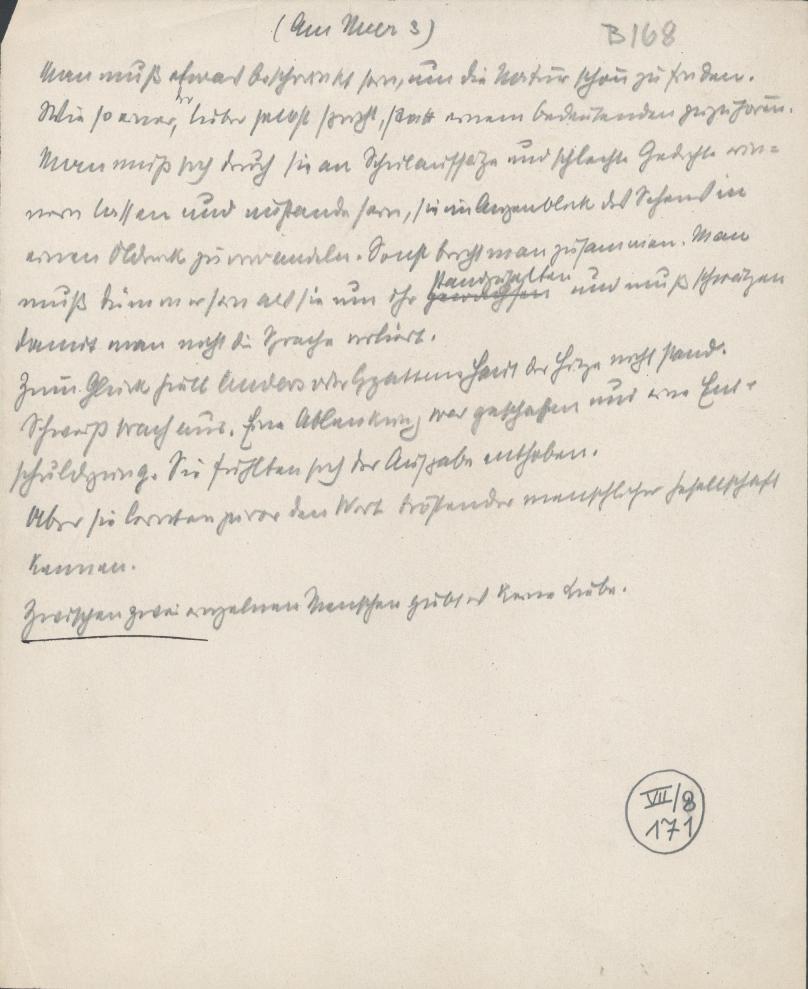 (Am Meer 3)
B168
Man muß etwas beschränkt sein, um die Natur schön zu finden.
Wie so einer, der lieber selbst spricht, statt einem bedeutenden zuzuhören.
Man muß sich durch sie an Schulaufsätze und schlechte Gedichte erin=
nern lassen und imstande sein, sie im Augenblick des Sehens in
einen Öldruck zu verwandeln. Sonst bricht man zusammen. Man
muß dümmer sein als sie um ihr standzuhalten und muß schwätzen
damit man nicht die Sprache verliert.
Zum Glück hielt Anders oder Haut der Hitze nicht stand.
Schweiß brach aus. Eine Ablenkung war geschaffen und eine Ent=
schuldigung. Sie fühlten sich der Aufgabe enthoben.
Aber sie lernten zuvor den Wert tröstender menschlicher Gesellschaft
kennen.
Zwischen zwei einzelnen Menschen gibt es keine Liebe.
VII/8
171